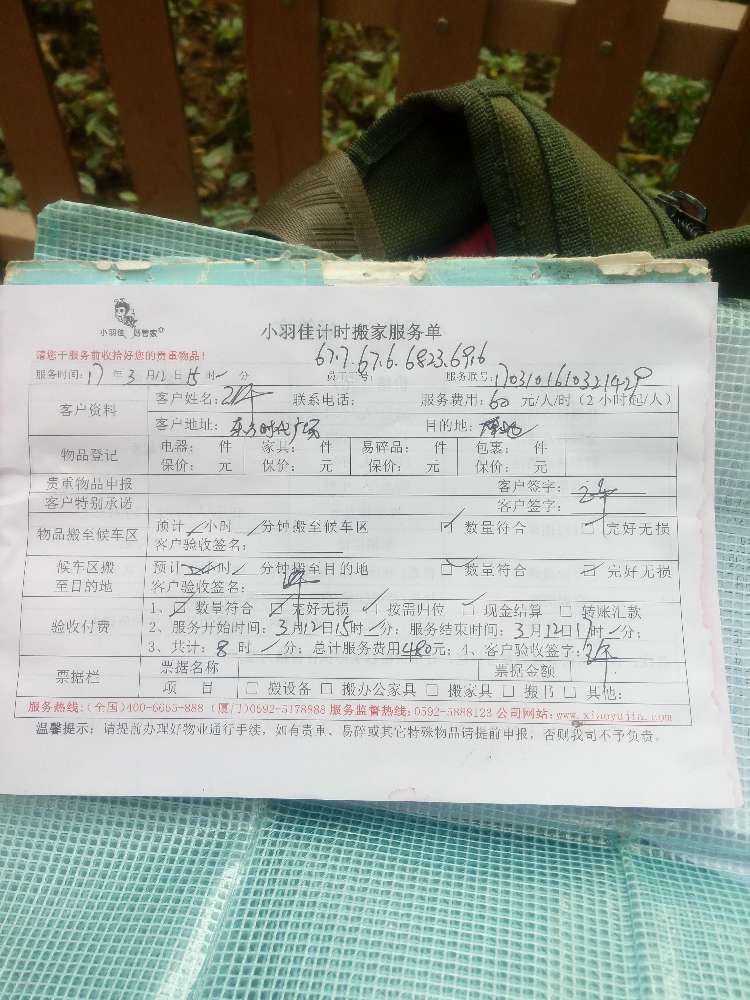 小羽佳 好管家
小羽佳计时搬家服务单
请您于服务前收拾好您的贵重物品!
6717.6716.6823.6916
服务时间:17年3月12日15时 分 员工号: 服务联号:
客户资料 客户姓名: 联系电话: 服务费用:60元/人/时(2小时起/人)
客户地址:东方时代广场 目的地:
物品登记 电器: 件 家具: 件 易碎品: 件 包裹: 件
保价: 元 保价: 元 保价: 元 保价: 元
贵重物品申报 客户签字:
客户特别承诺 客户签字:
物品搬至候车区 预计 小时 分钟搬至候车区 数量符合 完好无损
客户验收签名:
候车区搬至目的地 预计 小时 分钟搬至目的地 数量符合 完好无损
客户验收签名:
验收付费 1、 数量符合 完好无损 按需归位 现金结算 转账汇款
2、服务开始时间:3月12日15时 分; 服务结束时间:3月12日17时 分;
3、共计:8时 分; 总计服务费用480元; 4、客户验收签字:
票据栏 票据名称 票据金额
项 目 搬设备 搬办公家具 搬家具 搬书 其他:
服务热线:(全国)400-6665-888 (厦门)0592-5178888 服务监督热线:0592-5888123 公司网站:www.xiaoyujia.com
温馨提示:请提前办理好物业通行手续,如有贵重、易碎或其它特殊物品请提前申报,否则我司不予负责。